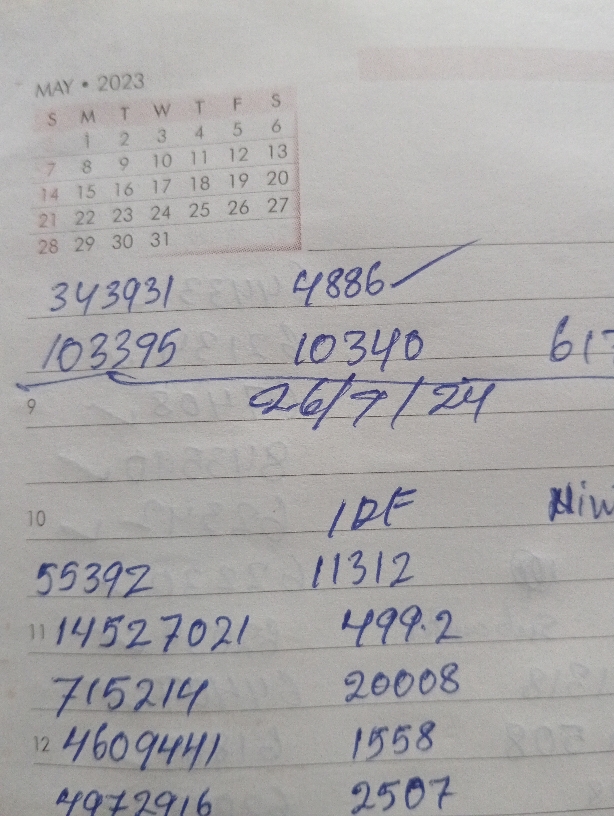 MAY • 2023
S M T W T F S
1 2 3 4 5 6
7 8 9 10 11 12 13
14 15 16 17 18 19 20
21 22 23 24 25 26 27
28 29 30 31
343931 4886 ✓
103395 10340 617
26/7/24
9
10 IDF
55392 11312
11 14527021 499.2
715214 20008
12 4609441 1558
4972916 2507